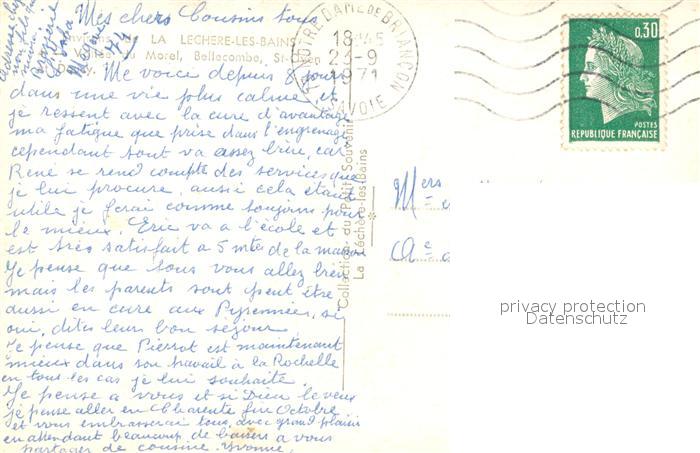 Mes chers Cousins tous
Environs de LA LECHERE-LES-BAINS
Vallée du Morel, Bellecombe, St-
NOTRE DAME DE BRIANÇON
18 45
23-9
1971
SAVOIE
0,30
POSTES
REPUBLIQUE FRANÇAISE
Me voice depuis 8 jours
dans une vie plus calme et
je ressent avec la cure d'avantage
ma fatigue que prise dans l'engrenage
cependant tout va assez bien, car
René se rend compte des services que
je lui procure, aussi cela étant
utile je ferai comme toujours pour
le mieux. Eric va a l'école et
est très satisfait a 5 mtes de la maison
Je pense que tous vous allez bien
mais les parents sont peut être
aussi en cure aux Pyrennées, si
oui, dites leurs bon séjour
Je pense que Pierrot est maintenant
mieux dans son travail à la Rochelle
en tous les cas je lui souhaite.
Je pense a vous et si Dieu le veux
je pense aller en Charente fin Octobre
et vous embrasserai tous, avec grand plaisir
en attendant beaucoup de baisers a vous
partager de cousine Yvonne.
Collection du Petit Souvenir
La Léchère-les-Bains
privacy protection
Datenschutz